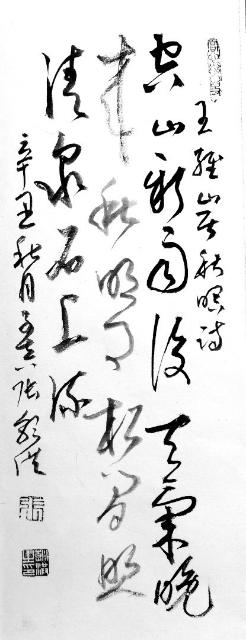 王維山居秋暝诗
空山新雨後天氣晚
來秋明月松间照
清泉石上流
辛丑秋月